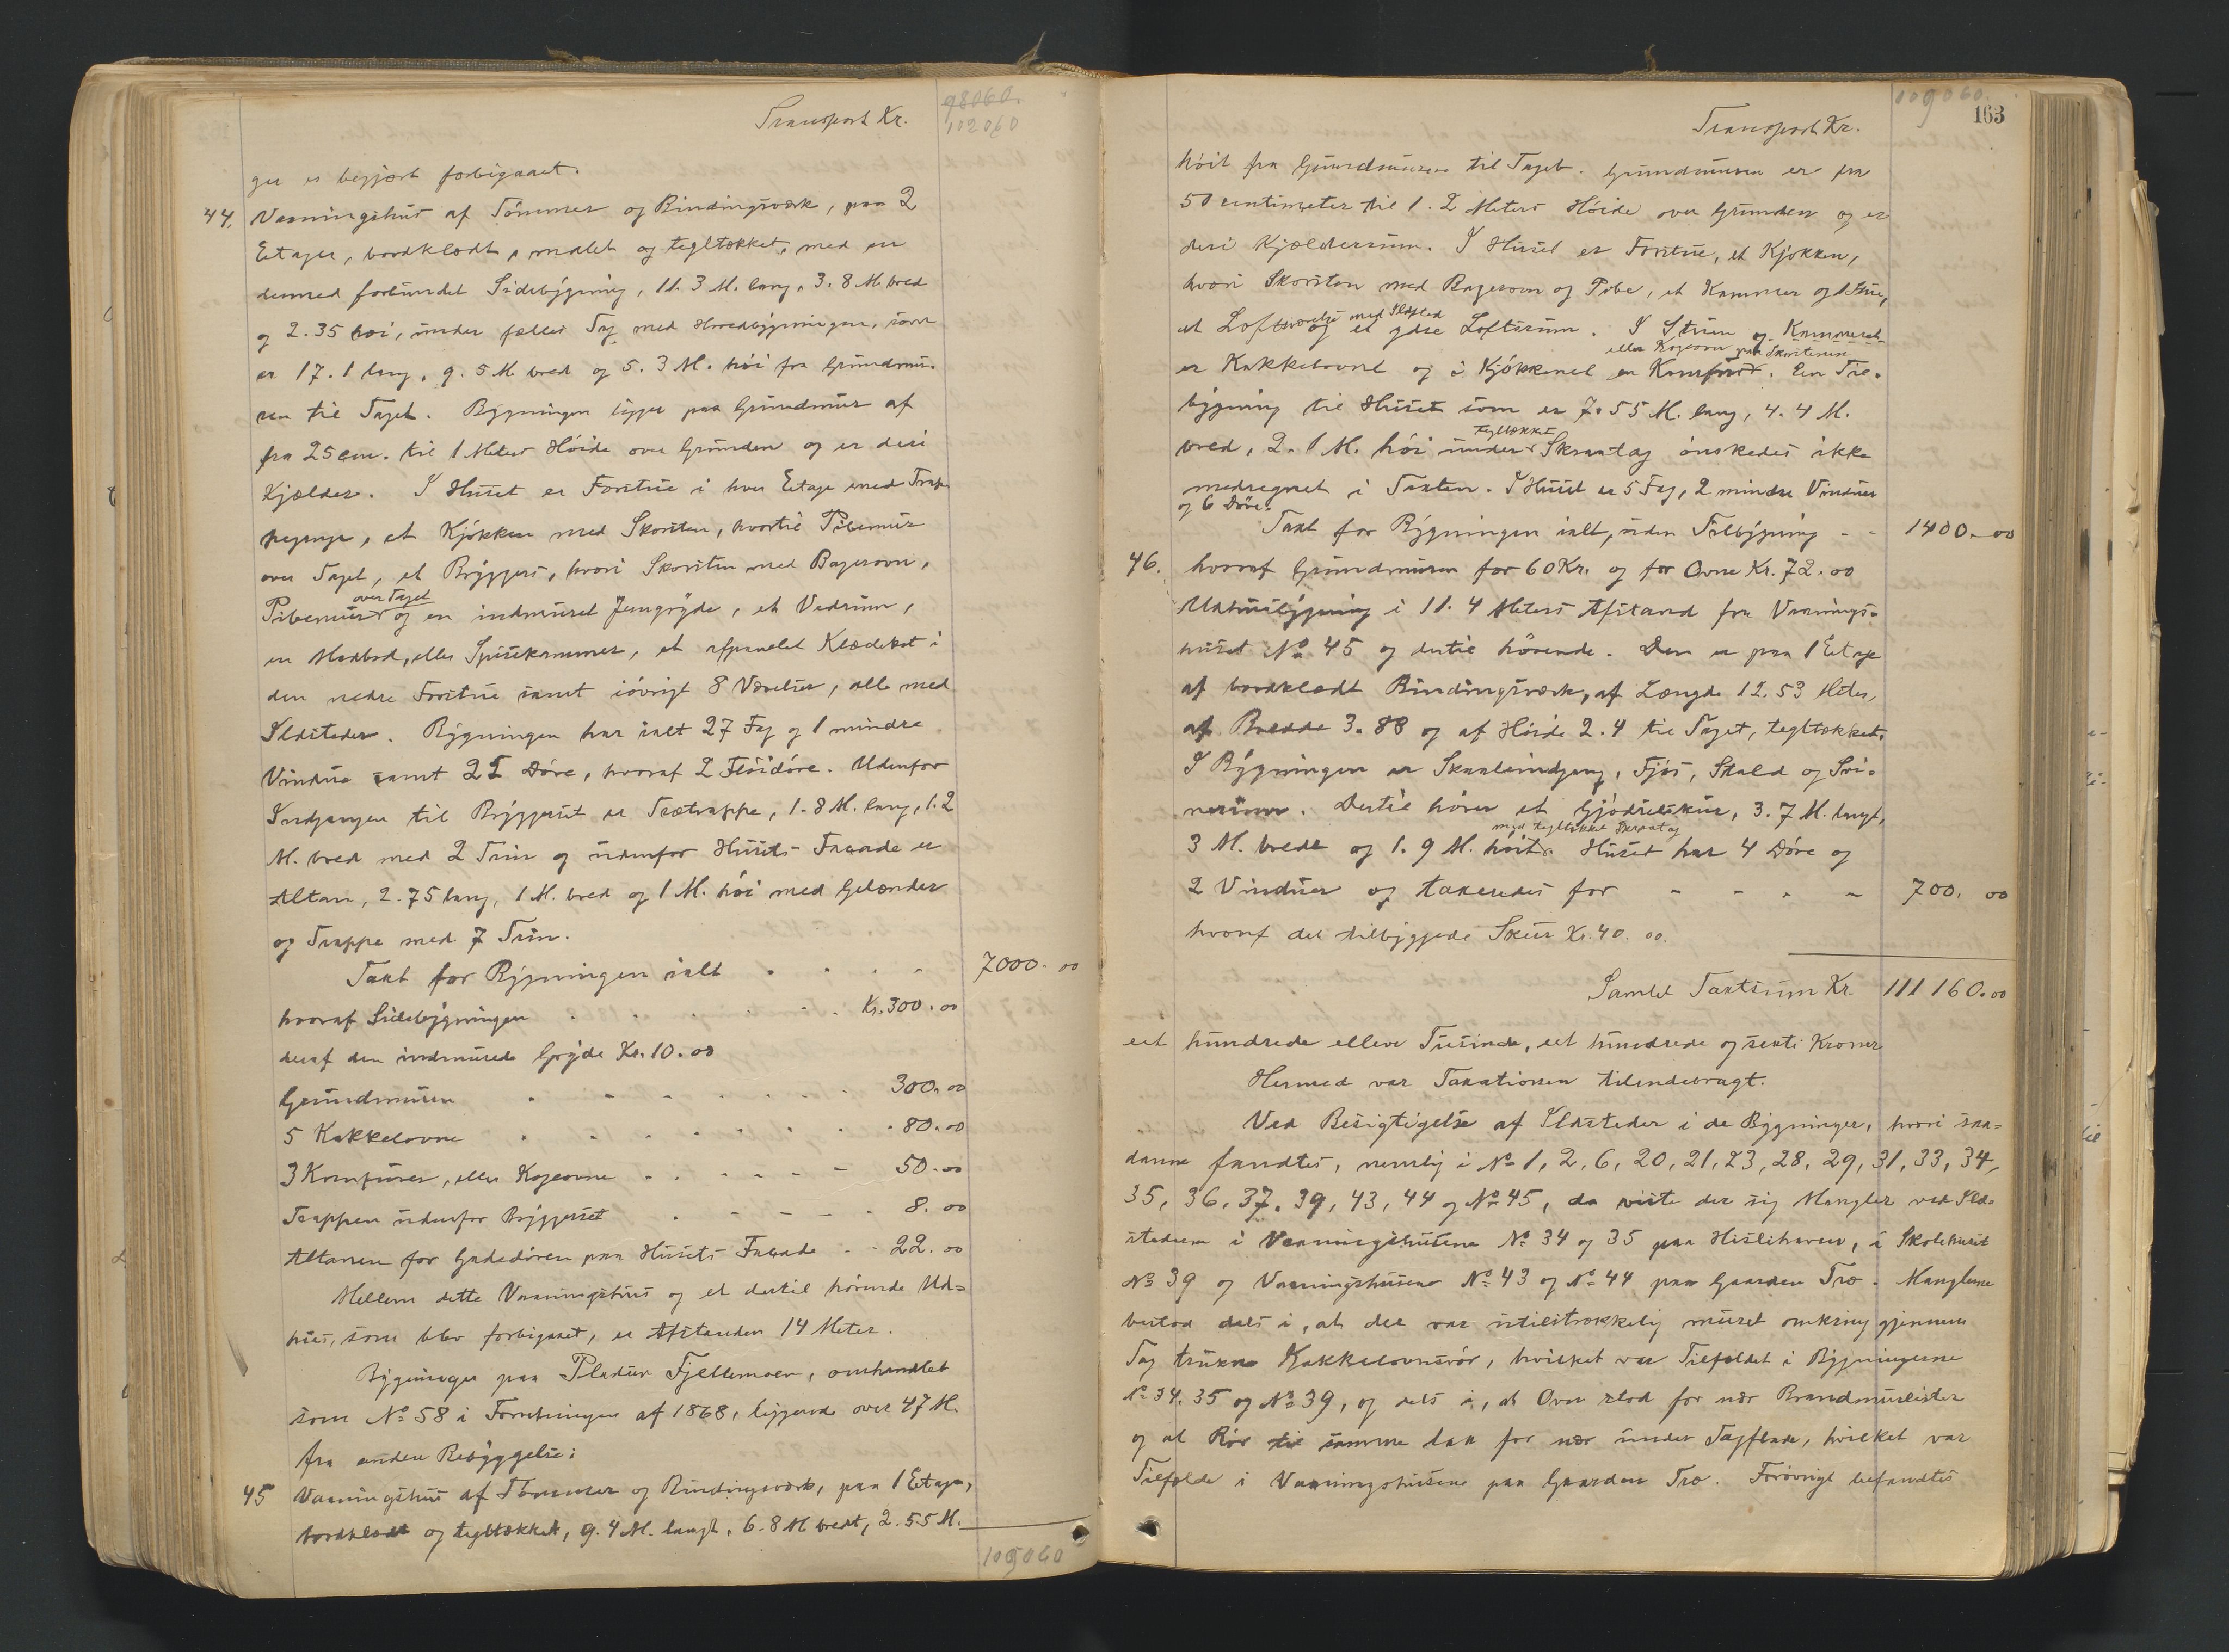 Transport Kr.
98060.
102060
ger er begjært forbigaaet.
44. Vaaningshus af Tømmer og Bindingsværk, paa 2
Etager, bordklædt, malet og tegltækket, med en
dermed forbundet Sidebygning, 11.3 M. lang, 3.8 M. bred
og 2.35 høi, under fælles Tag med Hovedbygningen, som
er 17.1 lang, 9.5 M bred og 5.3 M. høi fra Grundmu-
ren til Taget. Bygningen ligger paa Grundmur af
fra 25 cm. til 1 Meters Høide over Grunden og er deri
Kjælder. I Huset er Forstue i hver Etage med Trap-
pegange, et Kjøkken med Skorsten, hvortil Pibemur
over Taget, et Bryggers, hvori Skorsten med Bagerovn,
over Taget
Pibemur og en indmuret Jerngryde, et Vedrum,
en Madbod, eller Spisekammer, et afpanelet Klædekot i
den nedre Forstue samt iøvrigt 8 Værelser, alle med
Ildsteder. Bygningen har ialt 27 Fag og 1 mindre
Vindue samt 25 Døre, hvoraf 2 Fløidøre. Udenfor
Indgangen til Bryggerset er Trætrappe, 1.8 M. lang, 1.2
M. bred med 2 Trin og udenfor Husets Facade er
Altan, 2.75 lang, 1 M. bred og 1 M. høi med Gelænder
og Trappe med 7 Trin.
Taxt for Bygningen ialt . . . . 7000.00
hvoraf Sidebygningen . . . . . Kr. 300.00
deraf den indmurede Gryde Kr. 10.00
Grundmuren . . . . . . 300.00
5 Kakkelovne . . . . . . 80.00
3 Komfurer, eller Kogeovne . . . . . 50.00
Trappen udenfor Bryggerset . . . . 8.00
Altanen for Gadedøren paa Husets Facade . . 22.00
Mellem dette Vaaningshus og et dertil hørende Ud=
hus, som blev forbigaaet, er Afstanden 14 Meter.
Bygninger paa Pladsen Fjellemoen, omhandlet
som No 58 i Forretningen af 1868, liggende over 47 M.
fra anden Bebyggelse:
45 Vaaningshus af Tømmer og Bindingsværk, paa 1 Etage,
bordklædt og tegltækket, 9.4 M. langt, 6.8 M bredt, 2.55 M.
109060
109060.
163
Transport Kr.
høit fra Grundmuren til Taget. Grundmuren er fra
50 centimeter til 1.2 Meters Høide over Grunden og er
deri Kjælderrum. I Huset er Forstue, et Kjøkken,
hvori Skorsten med Bagerovn og Pibe, et Kammer og 1 Stue,
med Ildsted
et Loftsværelse og et ydre Loftsrum. I Stuen og Kammeret
eller Kogeovn paa Skorstenen
er Kakkelovne og i Kjøkkenet en Komfur. En Til-
bygning til Huset som er 7.55 M. lang, 4.4 M.
tegltækket
bred, 2.1 M. høi under Skraatag ønskedes ikke
medregnet i Taxten. I Huset er 5 Fag, 2 mindre Vinduer
og 6 Døre.
Taxt for Bygningen ialt, uden Tilbygning - - 1400.00
46. hvoraf Grundmuren for 60 Kr. og for Ovne Kr. 72.00
Udhusbygning i 11.4 Meters Afstand fra Vaanings-
huset No 45 og dertil hørende. Den er paa 1 Etage
af bordklædt Bindingsværk, af Længde 12.53 Meter,
af Bredde 3.88 og af Høide 2.4 til Taget, tegltækket.
I Bygningen er Skaaleindgang, Fjøs, Stald og Svi-
nerum. Dertil hører et Gjødselskur, 3.7 M. langt,
med tegltækket Skraatag
3 M. bredt og 1.9 M. høit. Huset har 4 Døre og
2 Vinduer og taxeredes for - - - - 700.00
hvoraf det tilbyggede Skur Kr. 40.00.
Samlet Taxtsum Kr. 111160.00
eet hundrede elleve Tusinde, eet hundrede og sexti Kroner
Hermed var Taxationen tilendebragt.
Ved Besigtigelse af Ildsteder i de Bygninger, hvori saa=
danne fandtes, nemlig i No 1, 2, 6, 20, 21, 23, 28, 29, 31, 33, 34,
35, 36, 37, 39, 43, 44 og No 45, da viste der sig Mangler ved Ild-
stederne i Vaaningshusene No 34 og 35 paa Hislihaven, i Skolehuset
No 39 og Vaaningshusene No 43 og No 44 paa Gaarden Tro. Manglerne
bestod dels i, at det var utilstrækkelig muret omkring gjennem
Tag trukne Kakkelovnsrør, hvilket var Tilfældet i Bygningerne
No 34, 35 og No 39, og dels i, at Ovn stod for nær Brandmurlister
og at Rør til samme laa for nær under Tagflade, hvilket var
Tilfælde i Vaaningshusene paa Gaarden Tro. Forøvrigt befandtes